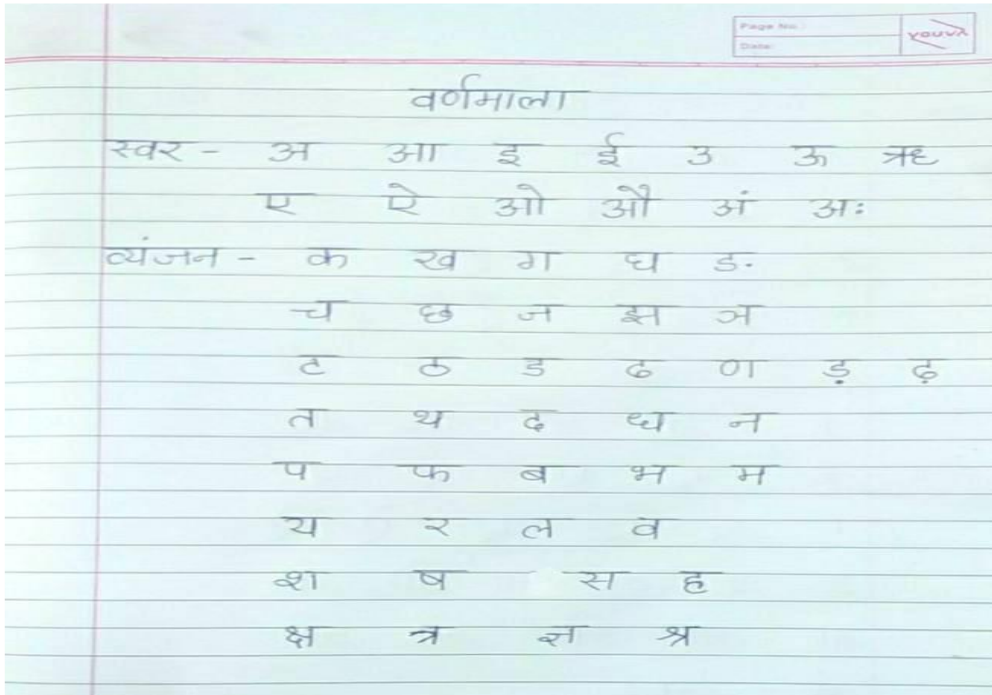 Page No.
Date:
YOUVA
वर्णमाला
स्वर - अ आ इ ई उ ऊ ऋ
ए ऐ ओ औ अं अः
व्यंजन - क ख ग घ ङ
च छ ज झ ञ
ट ठ ड ढ ण ड़ ढ़
त थ द ध न
प फ ब भ म
य र ल व
श ष स ह
क्ष त्र ज्ञ श्र